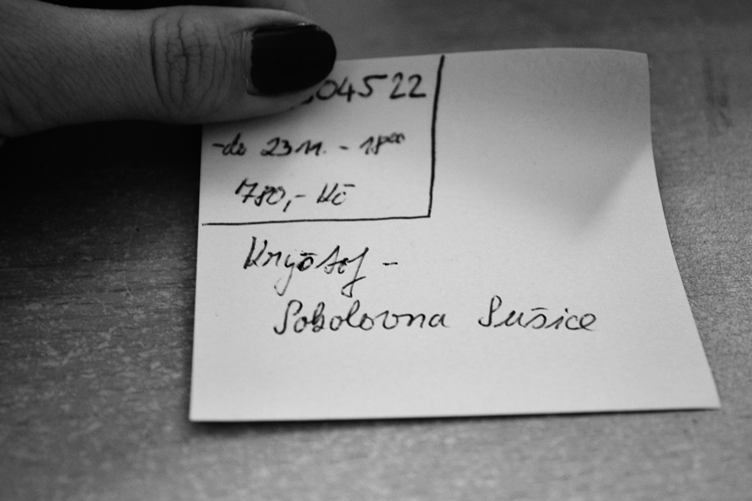 04522
-do 23 11. - 18⁰⁰
780,- Kč
Kryštof -
Sokolovna Sušice